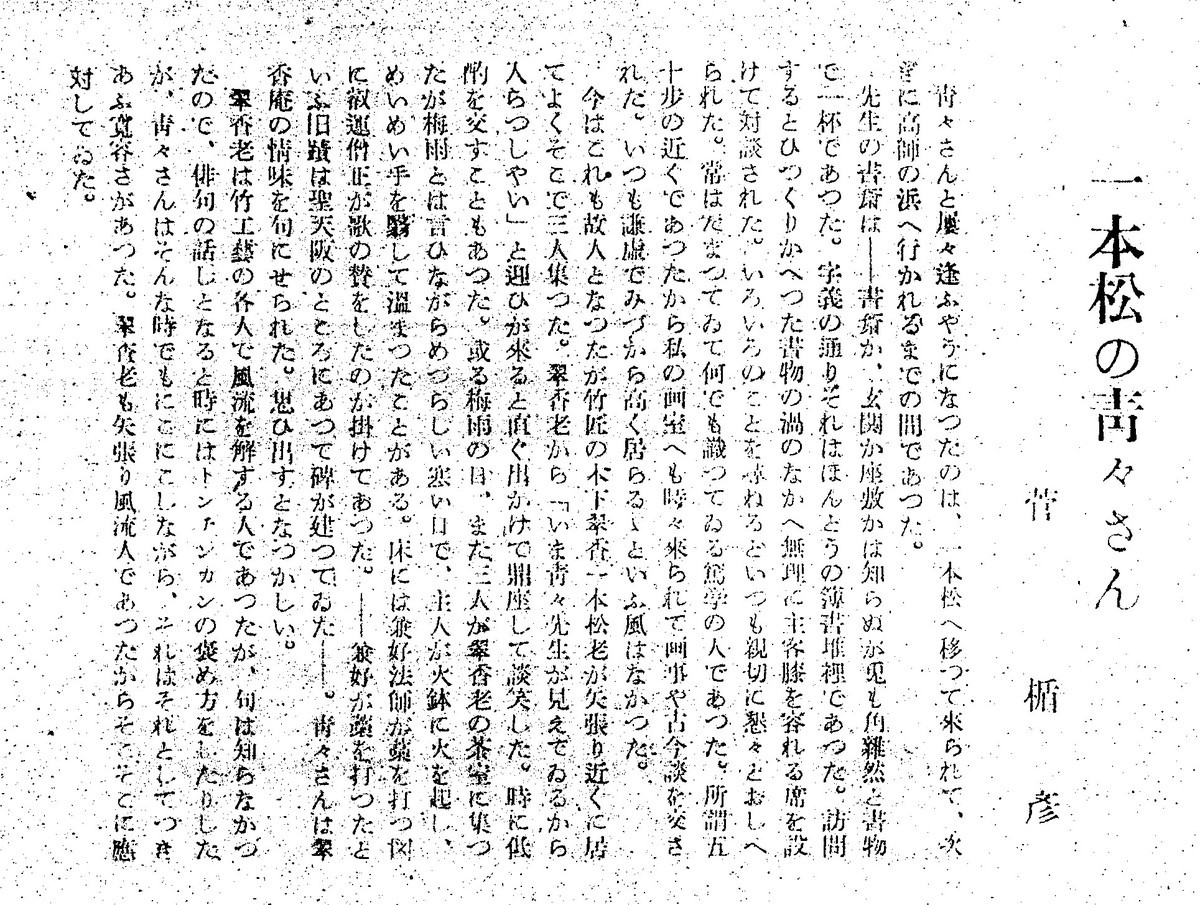 一本松の青々さん
菅楯彦
青々さんと屢々逢ふやうになつたのは、一本松へ移つて来られて、次
に高師の浜へ行かれるまでの間であつた。
先生の書斎は――書斎か、玄関か座敷かは知らぬが兎も角雑然と書物
で一杯であつた。字義の通りそれはほんとうの簿書堆裡であつた。訪問
するとひつくりかへつた書物の渦のなかへ無理に主客膝を容れる席を設
けて対談された。いろいろのことを尋ねるといつも親切に懇々とおしへ
られた。常はだまつてゐて何でも識つてゐる篤学の人であつた。所謂五
十歩の近くであつたから私の画室へも時々来られて画事や古今談を交さ
れた。いつも謙虚でみづから高く居らるゝといふ風はなかつた。
今はこれも故人となつたが竹匠の木下翠香一本松老が矢張り近くに居
てよくそこで三人集つた。翠香老から「いま青々先生が見えてゐるから
入らつしやい」と迎ひが来ると直ぐ出かけて鼎座して談笑した。時に低
酌を交すこともあつた。或る梅雨の日、また三人が翠香老の茶室に集つ
たが梅雨とは言ひながらめづらしい寒い日で、主人が火鉢に火を起し、
めいめい手を翳して温まつたことがある。床には兼好法師が藁を打つ図
に叡運僧正が歌の賛をしたのが掛けてあつた。――兼好が藁を打つたと
いふ旧蹟は聖天阪のところにあつて碑が建つてゐた――。青々さんは翠
香庵の情味を句にせられた。思ひ出すとなつかしい。
翠香老は竹工藝の各人で風流を解する人であつたが、句は知らなかつ
たので、俳句の話しとなると時にはトンチンカンの褒め方をしたりした
が、青々さんはそんな時でもにこにこしながら、それはそれとしてつき
あふ寛容さがあつた。翠香老も矢張り風流人であつたからそこそこに應
対してゐた。